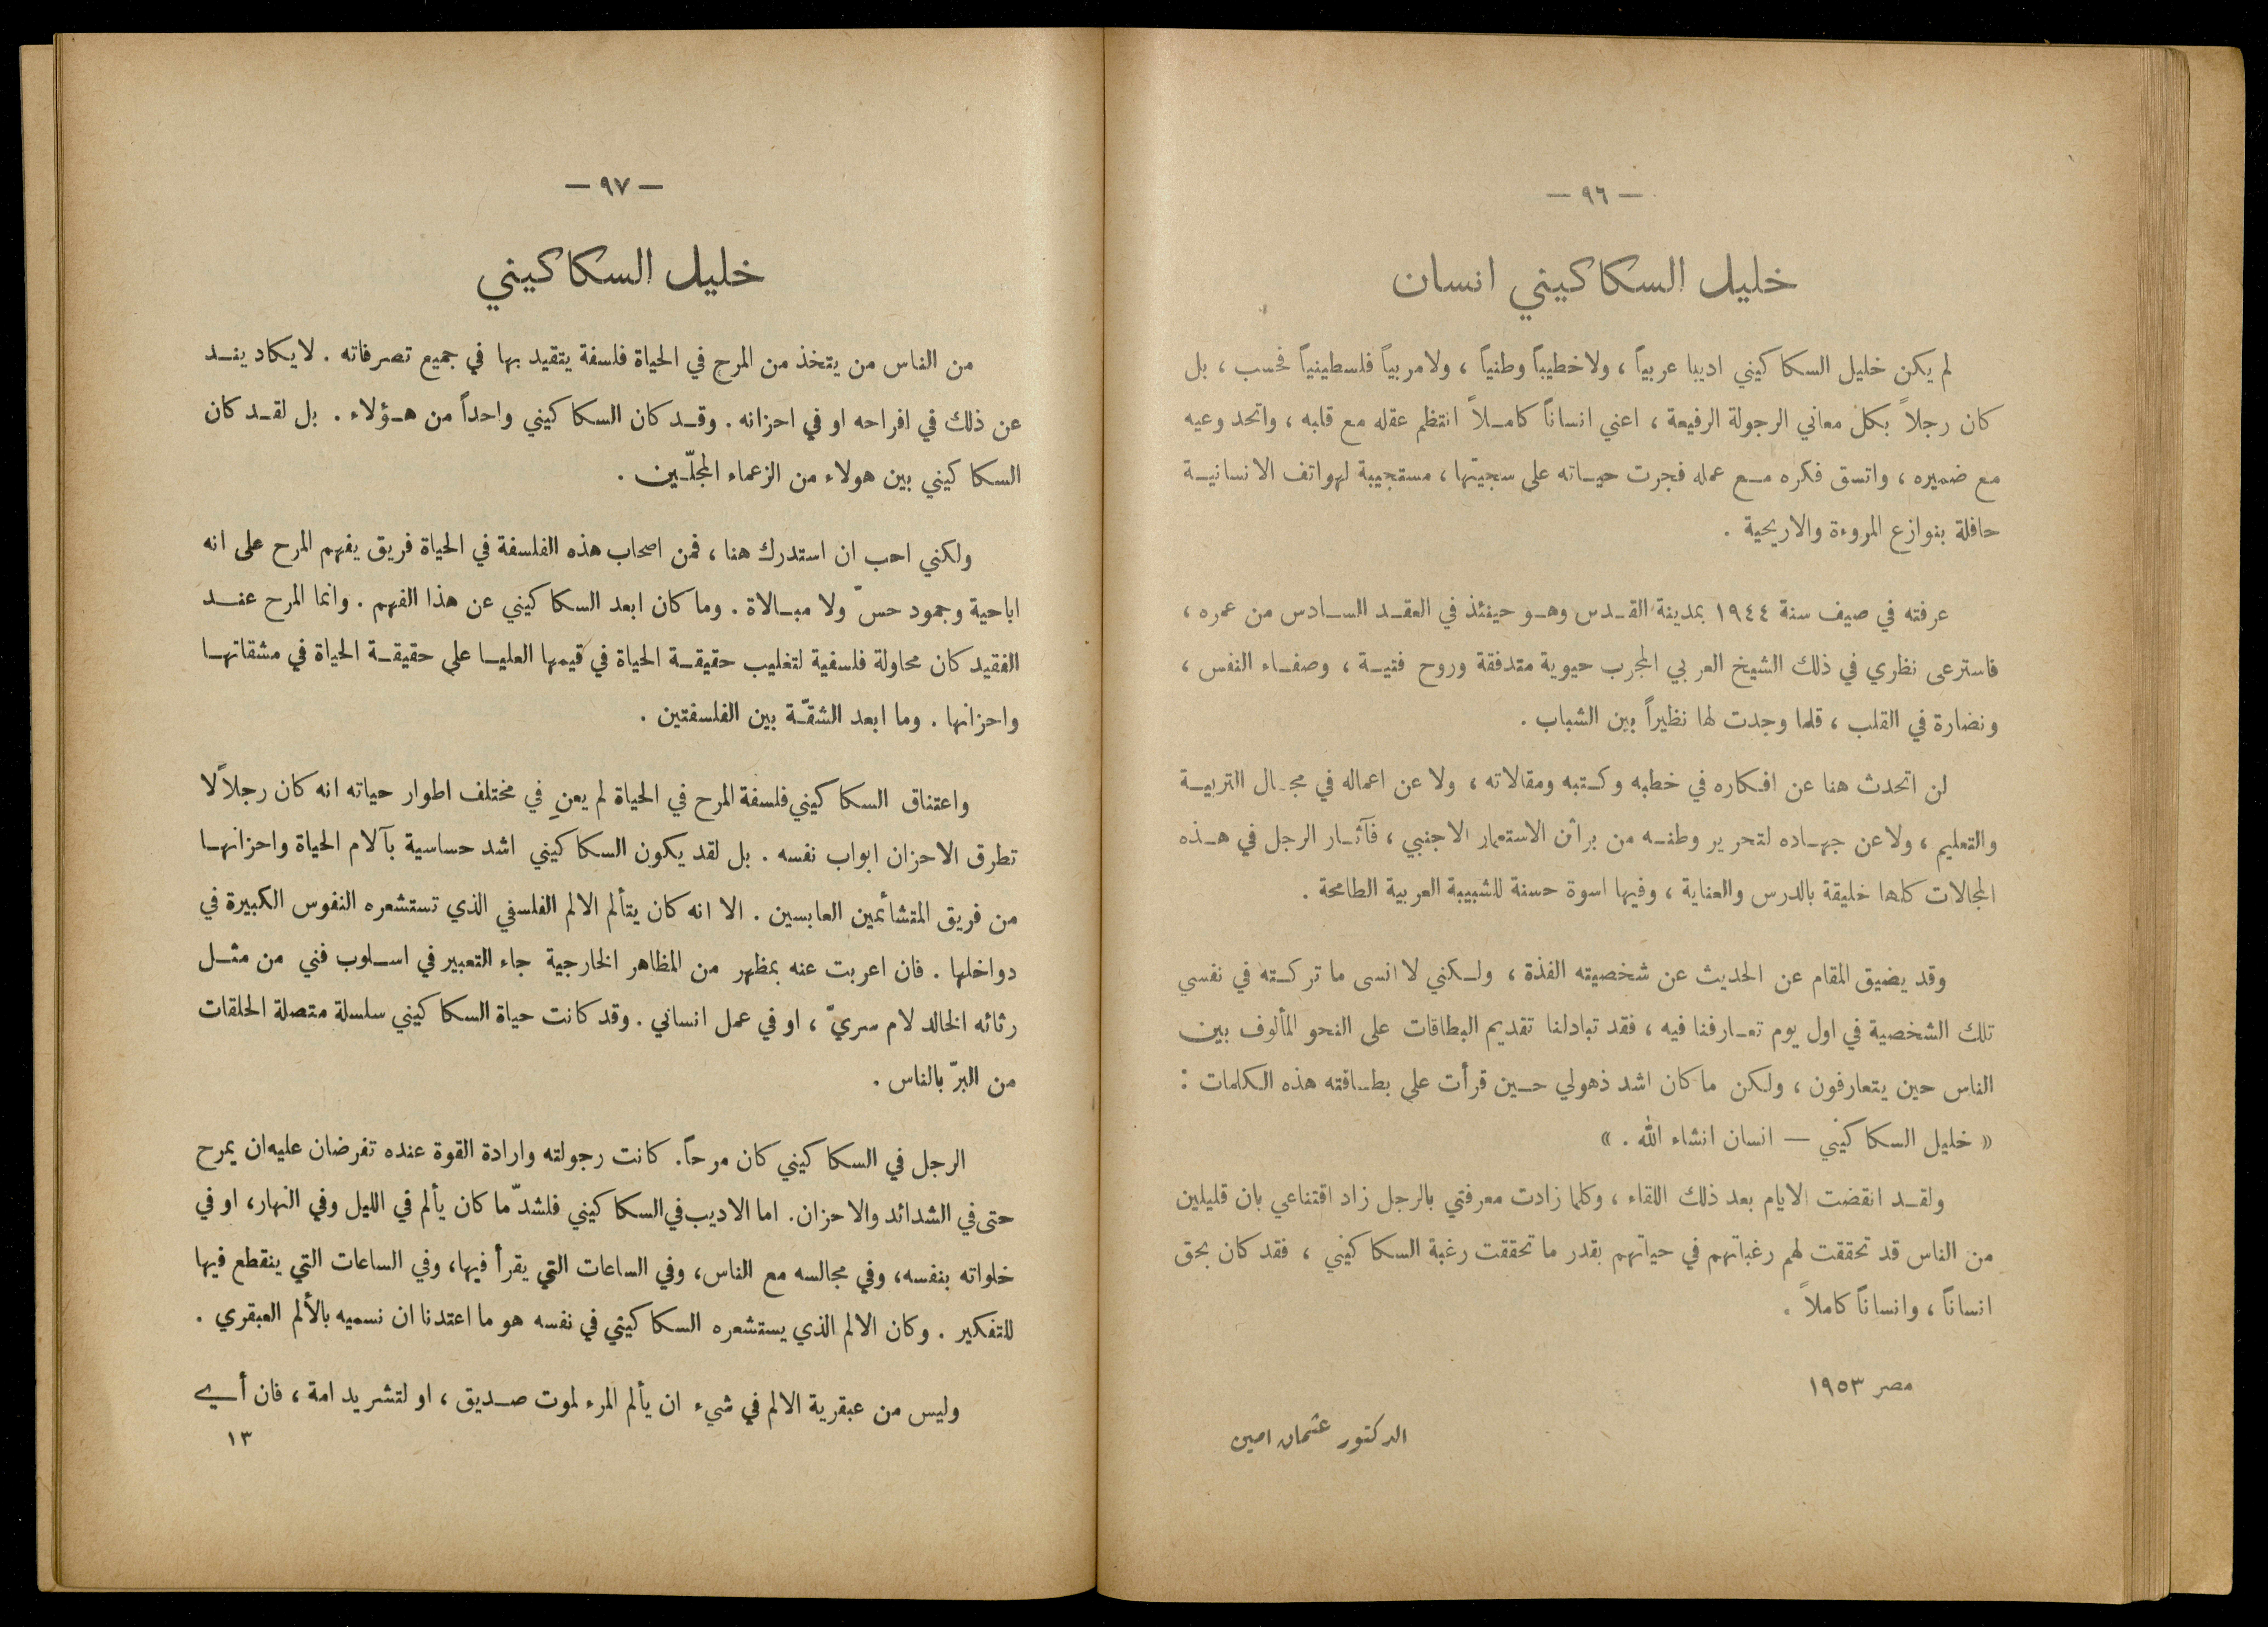 — ٩٦ —
خليل السكاكيني انسان
لم يكن خليل السكاكيني اديبا عربياً ، ولا خطيباً وطنياً ، ولا مربياً فلسطينياً فحسب ، بل
كان رجلاً بكل معاني الرجولة الرفيعة ، اعني انساناً كاملاً انتظم عقله مع قلبه ، واتحد وعيه
مع ضميره ، واتسق فكره مع عمله فجرت حياته على سجيتها ، مستجيبة لهواتف الانسانية
حافلة بنوازع المروءة والاريحية .
عرفته في صيف سنة ١٩٤٤ بمدينة القدس وهو حينئذ في العقد السادس من عمره ،
فاسترعى نظري في ذلك الشيخ العربي المجرب حيوية متدفقة وروح فتية ، وصفاء النفس ،
ونضارة في القلب ، قلما وجدت لها نظيراً بين الشباب .
لن اتحدث هنا عن افكاره في خطبه وكتبه ومقالاته ، ولا عن اعماله في مجال التربية
والتعليم ، ولا عن جهاده لتحرير وطنه من براثن الاستعمار الاجنبي ، فآثار الرجل في هذه
المجالات كلها خليقة بالدرس والعناية ، وفيها اسوة حسنة للشبيبة العربية الطامحة .
وقد يضيق المقام عن الحديث عن شخصيته الفذة ، ولكني لا انسى ما تركته في نفسي
تلك الشخصية في اول يوم تعارفنا فيه ، فقد تبادلنا تقديم البطاقات على النحو المألوف بين
الناس حين يتعارفون ، ولكن ما كان اشد ذهولي حين قرأت على بطاقته هذه الكلمات :
« خليل السكاكيني — انسان انشاء الله . »
ولقد انقضت الايام بعد ذلك اللقاء ، وكلما زادت معرفتي بالرجل زاد اقتناعي بان قليلين
من الناس قد تحققت لهم رغباتهم في حياتهم بقدر ما تحققت رغبة السكاكيني ، فقد كان بحق
انساناً ، وانساناً كاملاً .
مصر ١٩٥٣
الدكتور عثمان امين
— ٩٧ —
خليل السكاكيني
من الناس من يتخذ من المرح في الحياة فلسفة يتقيد بها في جميع تصرفاته . لا يكاد يند
عن ذلك في افراحه او في احزانه . وقد كان السكاكيني واحداً من هؤلاء . بل لقد كان
السكاكيني بين هولاء من الزعماء المجلّين .
ولكني احب ان استدرك هنا ، فمن اصحاب هذه الفلسفة في الحياة فريق يفهم المرح على انه
اباحية وجمود حسّ ولا مبالاة . وما كان ابعد السكاكيني عن هذا الفهم . وانما المرح عند
الفقيد كان محاولة فلسفية لتغليب حقيقة الحياة في قيمها العليا على حقيقة الحياة في مشقاتها
واحزانها . وما ابعد الشقّة بين الفلسفتين .
واعتناق السكاكيني فلسفة المرح في الحياة لم يعنِ في مختلف اطوار حياته انه كان رجلاً لا
تطرق الاحزان ابواب نفسه . بل لقد يكون السكاكيني اشد حساسية بآلام الحياة واحزانها
من فريق المتشائمين العابسين . الا انه كان يتألم الالم الفلسفي الذي تستشعره النفوس الكبيرة في
دواخلها . فان اعربت عنه بمظهر من المظاهر الخارجية جاء التعبير في اسلوب فني من مثل
رثائه الخالد لام سريّ ، او في عمل انساني . وقد كانت حياة السكاكيني سلسلة متصلة الحلقات
من البرّ بالناس .
الرجل في السكاكيني كان مرحاً. كانت رجولته وارادة القوة عنده تفرضان عليه ان يمرح
حتى في الشدائد والاحزان. اما الاديب في السكاكيني فلشدّ ما كان يألم في الليل وفي النهار، او في
خلواته بنفسه، وفي مجالسه مع الناس، وفي الساعات التي يقرأ فيها، وفي الساعات التي ينقطع فيها
للتفكير . وكان الالم الذي يستشعره السكاكيني في نفسه هو ما اعتدنا ان نسميه بالألم العبقري .
وليس من عبقرية الالم في شيء ان يألم المرء لموت صديق ، او لتشريد امة ، فان أي
١٣